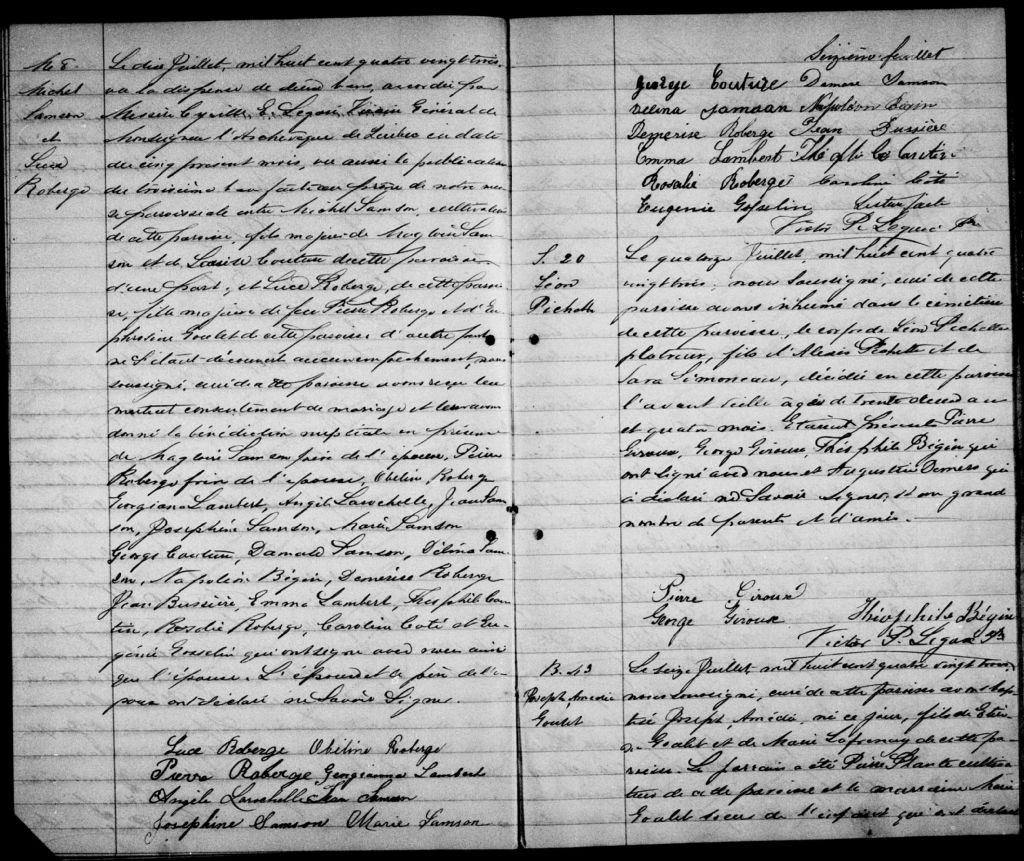 M 8
Michel
Samson
et
Luce
Roberge
Le dix Juillet, mil huit cent quatre vingt trois,
vu la dispense de deux bans, accordée par
Messire Cyrille E. Légaré, Vicaire Général de
Monseigneur l'Archevêque de Québec en date
du cinq présent mois, vu aussi la publication
du troisième ban faite au prône de notre mes-
se paroissiale entre Michel Samson, cultivateur
de cette paroisse, fils majeur de Magloire Sam-
son et de Couture de cette paroisse
d'une part; et Luce Roberge, de cette parois-
se, fille majeure de feu Pierre Roberge et d'Eu-
phrosine Goulet de cette paroisse d'autre part
ne s'étant découvert aucun empêchement, nous
soussigné, curé de cette paroisse avons reçu leur
mutuel consentement de mariage et leur avons
donné la bénédiction nuptiale en présence
de Magloire Samson père de l'époux, Pierre
Roberge frère de l'épouse, Obéline Roberge
Georgiana Lambert, Angèle Larochelle, Jean Sam-
son, Josephine Samson, Marie Samson
George Couture, Damase Samson, Délina Sam-
son, Napoléon Bégin, Demerise Roberge
Jean Bussière, Emma Lambert, Théophile Car-
tier, Rosalie Roberge, Caroline Coté et Eu-
génie Gosselin qui ont signé avec nous ainsi
que l'épouse. L'époux et le père de l'é-
poux ont déclaré ne savoir signer.
Luce Roberge Obéline Roberge
Pierre Roberge Georgianna Lambert
Angèle Larochelle Jean Samson
Josephine Samson Marie Samson
Seizième feuillet
George Couture Damase Samson
Delina Samson Napoléon Bégin
Demerise Roberge Jean Bussière
Emma Lambert Cartier
Rosalie Roberge Caroline Coté
Eugenie Gosselin
Victor P. Legaré Ptr
S. 20
Léon
Pichette
Le quatorze Juillet, mil huit cent quatre
vingt trois, nous soussigné, curé de cette
paroisse avons inhumé dans le cimetière
de cette paroisse, le corps de Léon Pichette
platrier, fils d'Alexis Pichette et de
Sara Simoneau, décédé en cette paroisse
l'avant veille âgé de trente deux ans
et quatre mois. Étaient présents Pierre
Giroux, George Giroux, Théophile Bégin qui
ont signé avec nous et Augustin Demers qui
a déclaré ne savoir signer, et un grand
nombre de parents et d'amis.
Pierre Giroux
George Giroux Théophile Bégin
Victor P. Legaré Ptr
B. 43
Joseph Amédée
Goulet
Le seize Juillet mil huit cent quatre vingt trois,
nous soussigné, curé de cette paroisse avons bap-
tisé Joseph Amédée, né ce jour, fils de
Goulet et de Marie Lafrenay de cette pa-
roisse. Le parrain a été Pierre Plante cultiva-
teur de cette paroisse et la marraine Marie
Goulet soeur de l'enfant qui ont déclaré